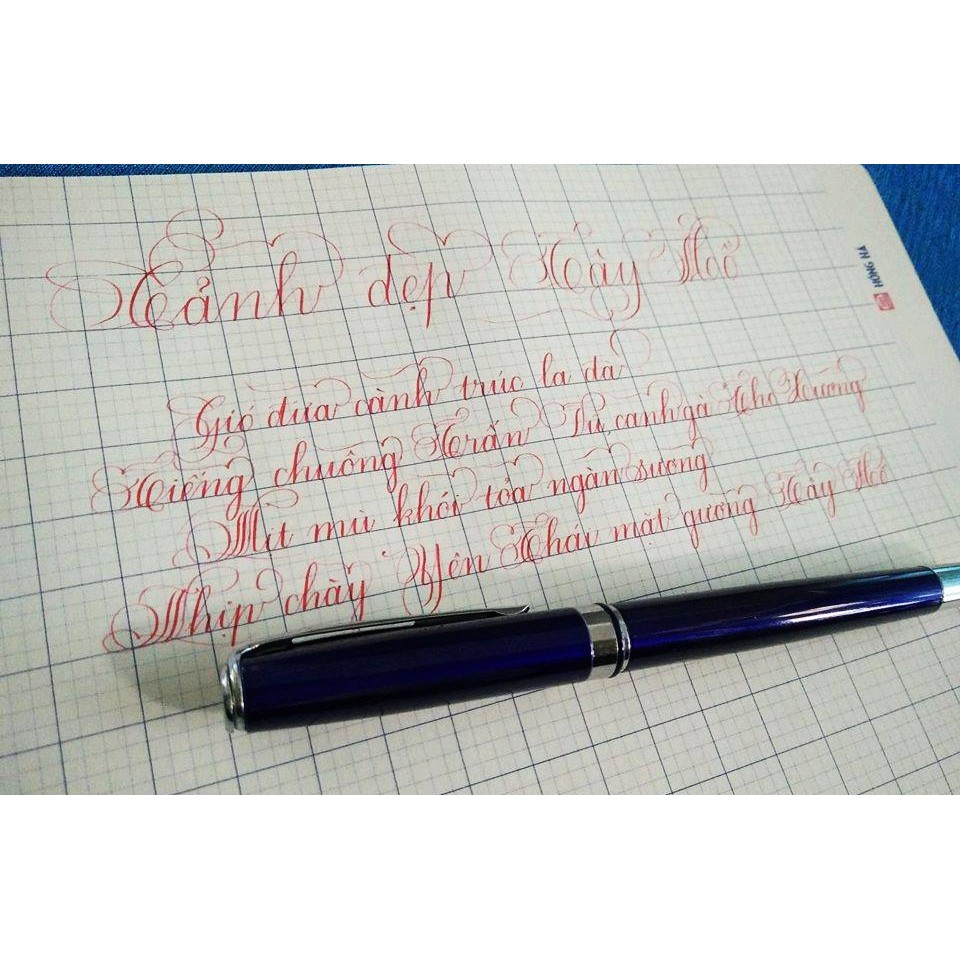 Cảnh đẹp Tây Hồ
Gió đưa cành trúc la đà
Tiếng chuông Trấn Vũ canh gà Thọ Xương
Mịt mù khói tỏa ngàn sương
Nhịp chày Yên Thái mặt gương Tây Hồ
HỒNG HÀ